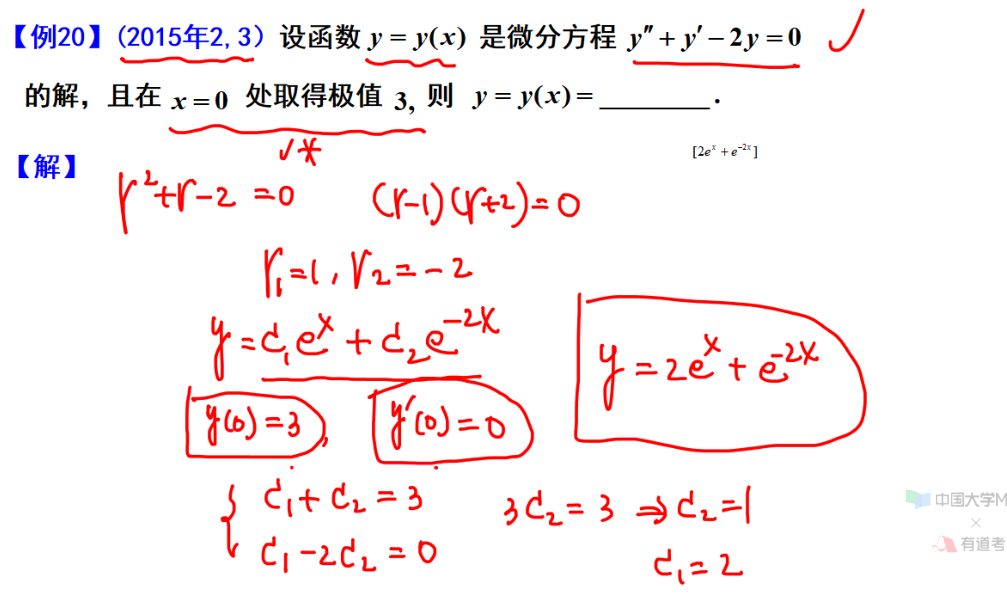 【例20】(2015年2,3) 设函数 y = y(x) 是微分方程 y″ + y′ − 2y = 0
的解，且在 x = 0 处取得极值 3, 则 y = y(x) = ________ .
[2eˣ + e⁻²ˣ]
【解】
r² + r − 2 = 0 (r−1)(r+2) = 0
r₁ = 1, r₂ = −2
y = C₁eˣ + C₂e⁻²ˣ
y = 2eˣ + e⁻²ˣ
y(0) = 3, y′(0) = 0
C₁ + C₂ = 3 3C₂ = 3 ⇒ C₂ = 1
C₁ − 2C₂ = 0 C₁ = 2
中国大学M
×
有道考